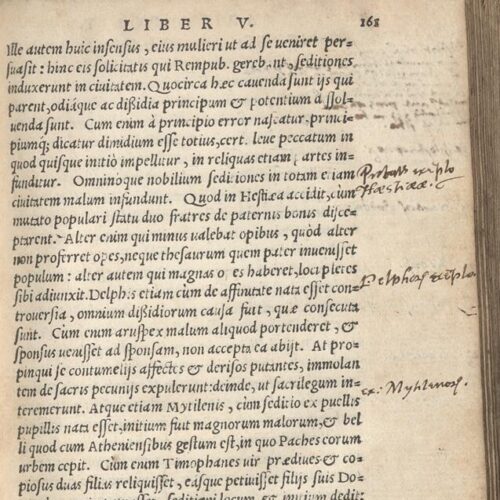 LIBER V. 161
Ille autem huic insensus, eius mulieri ut ad se veniret per-
suasit: hinc eis solicitatis qui Rempub. gerebant, seditiones
induxerunt in ciuitatem. Quocirca hæc cauenda sunt ijs qui
parent, odiáque ac dißidia principum & potentium dissol-
uenda sunt. Cum enim à principio error nascatur, princi-
piumq; dicatur dimidium esse totius, certe leue peccatum in
quod quisque initiò impellitur, in reliquas etiam partes in-
funditur. Omninoque nobilium seditiones in totam etiam
ciuitatem malum infundunt. Quod in Hestiæa accidit, cùm
mutato populari statu duo fratres de paternis bonis disce-
ptarent. Alter enim qui minus valebat opibus, quòd alter
non proferret opes, neque thesaurum quem pater inuenisset
populum: alter autem qui magnas opes haberet, locupletes
sibi adiunxit. Delphis etiam cùm de affinitate nata esset con-
trouersia, omnium dißidiorum causa fuit, quæ consecuta
sunt. Cum enim aruspex malum aliquod portenderet, &
sponsus venisset ad sponsam, non accepta ea abijt. At pro-
pinqui se contumelijs affectos & derisos putantes, immolan
tem de sacris pecunijs expulerunt: deinde, ut sacrilegum in-
teremerunt. Atque etiam Mytilenis, cùm seditio ex puellis
pupillis nata esset, initium fuit magnorum malorum, & bel
li quod cum Atheniensibus gestum est, in quo Paches eorum
urbem cepit. Cùm enim Timophanes vir prædiues & co-
piosus duas filias reliquisset, easque petiuisset filijs suis Do-